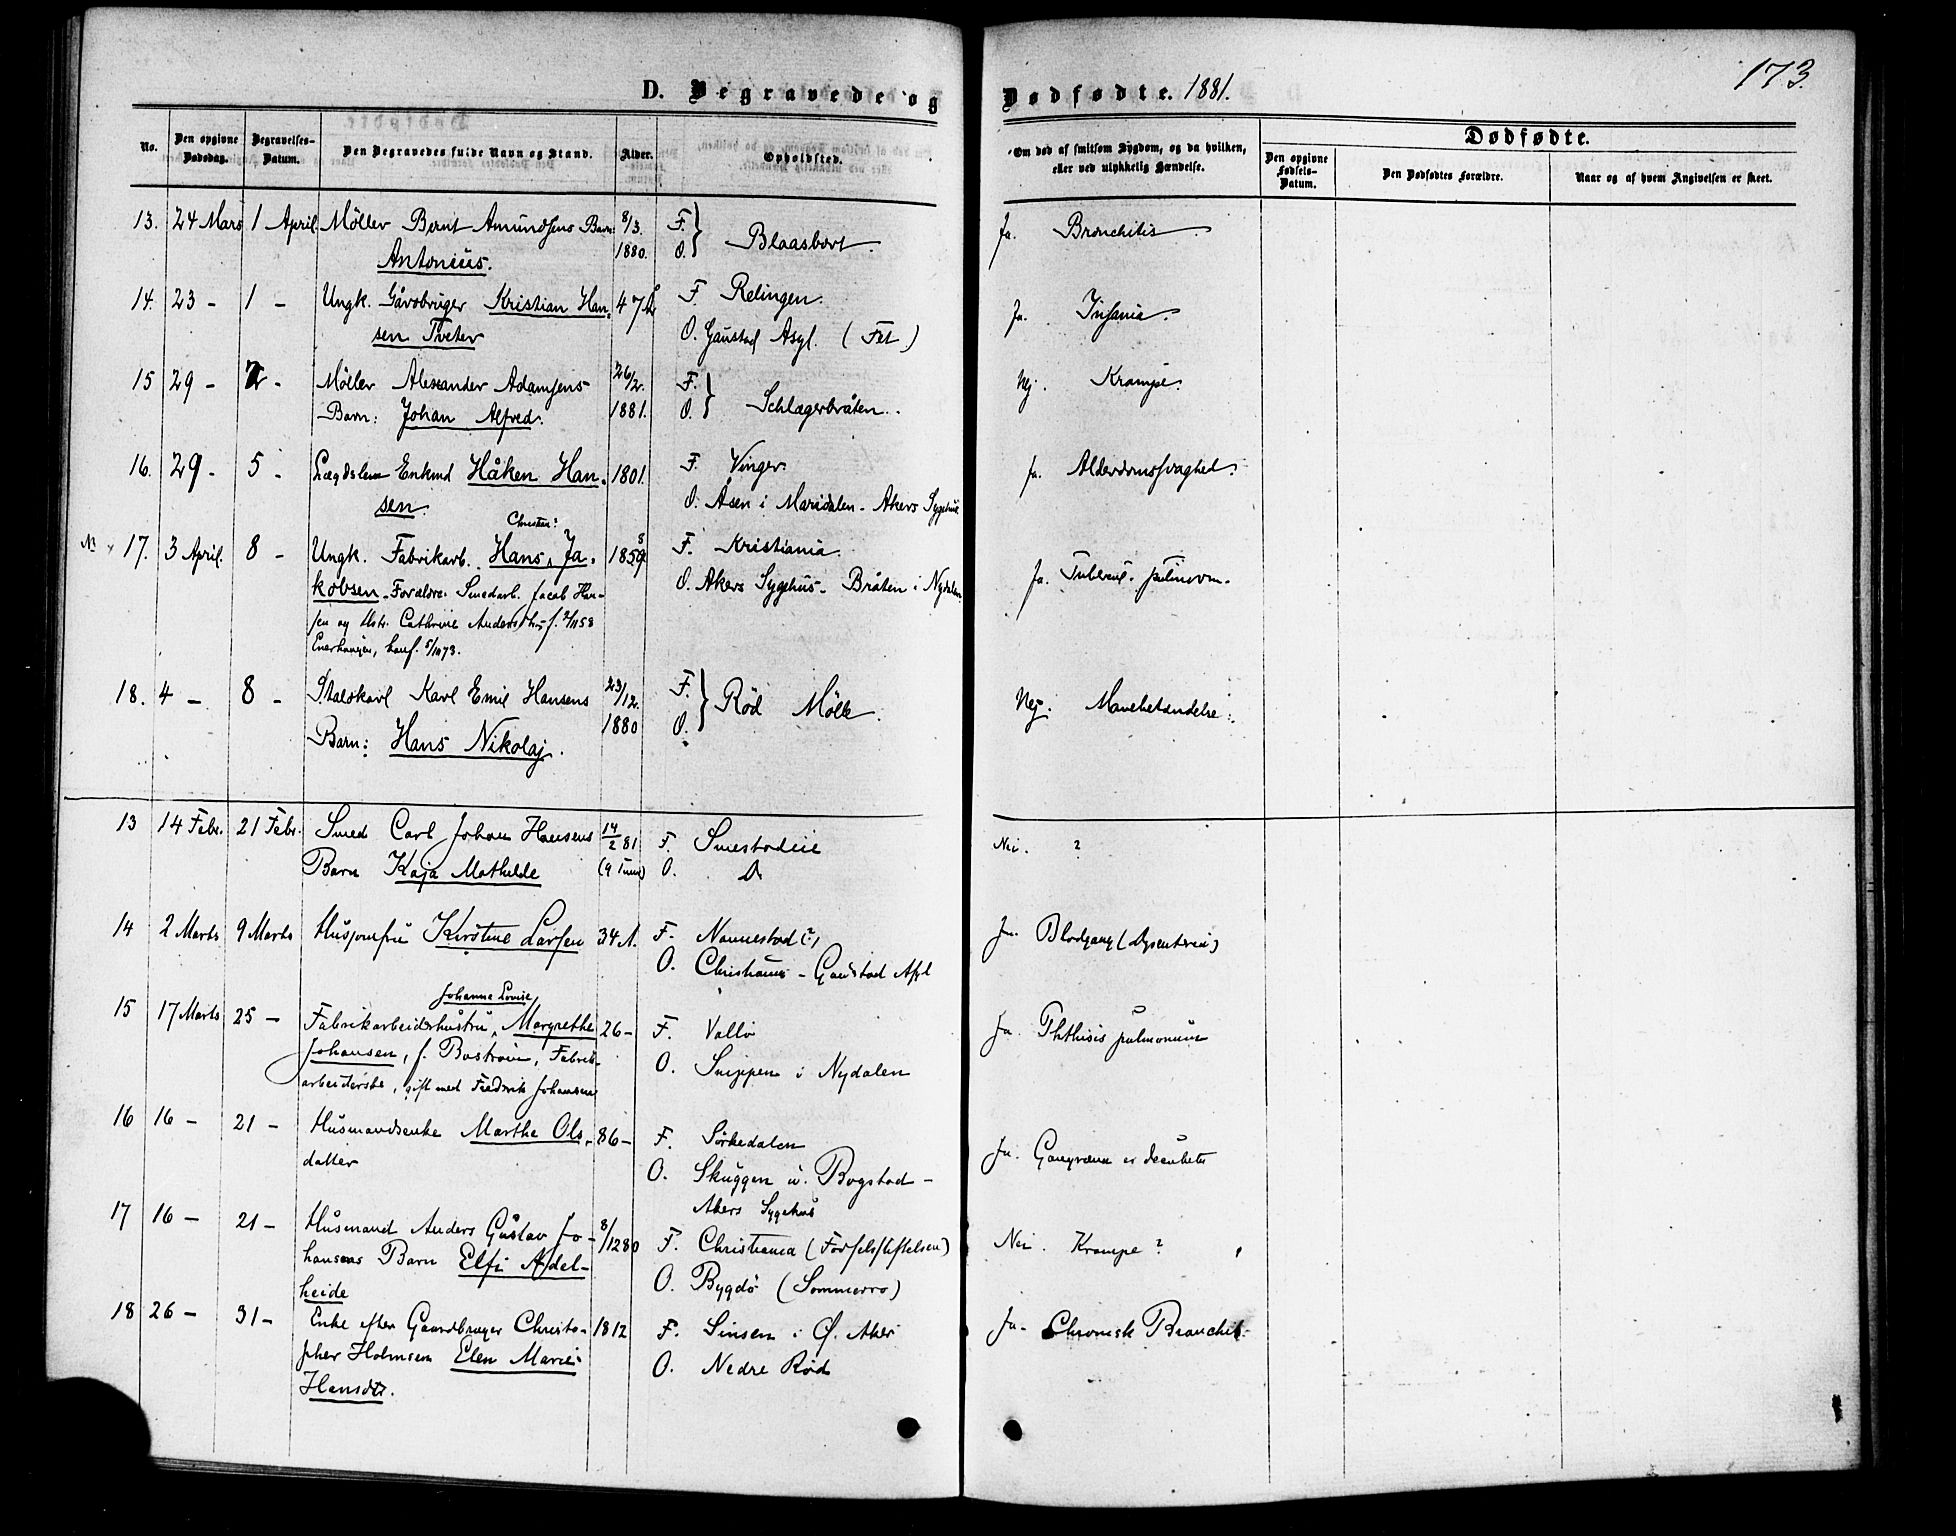 173.
D. Begravede og Dødfødte. 1881.
No. Den opgivne Dødsdag. Begravelses-Datum. Den Begravedes fulde Navn og Stand. Alder. Opholdsted. Om død af smitsom Sygdom, og da hvilken, eller ved ulykkelig Hændelse. Dødfødte. Den opgivne Fødsels-Datum. Den Dødfødtes Forældre. Naar og af hvem Angivelsen er skeet.
13. 24 Mars 1 April. Møller Bernt Amundsens Barn: 8/3. F. Ja. Bronchitis.
Antonius. 1880. O. Blaasbort.
14. 23 - 1 - Ungk. Gårdbruger Kristian Han- 47 År F. Relingen. Ja. Insania.
sen Tveter O. Gaustad Asyl. (Fet)
15 29 - 2 - Møller Alexander Adamsens 26/2. F. Nej. Krampe.
Barn: Johan Alfred. 1881. O. Schlagerbråten.
16. 29 - 5 - Lægdslem Enkemd Håken Han- 1801. F. Vinger. Ja. Alderdomssvaghed.
sen. O. Åsen i Maridalen - Akers Sygehus
Christian:
17. 3 April. 8 - Ungk. Fabrikarb. Hans, Ja- 1858 F. Kristiania. Ja. Tubercul. pulmon.
kobsen - Forældre: Smedarb. Jacob Han- O. Akers Sygehus - Bråten i Nydalen
sen og Hstr. Cathrine Andersdtr, f. 2/11 58
Enerhaugen, konf. 5/10 73.
18. 4 - 8 - Staldkarl Karl Emil Hansens 23/12. F. Nej. Mavebetændelse.
Barn: Hans Nikolaj. 1880 O. Rød Mølle.
13 14 Febr. 21 Febr. Smed Carl Johan Hansens 14/2 81 F. Smestadeie Nei. ?
Barn Kaja Mathilde (9 Timer) O. Do
14 2 Marts 9 Marts Husjomfru Kirstine Larsen 34 A. F. Nannestad (?) Ja. Blodgang (Dysenteri)
O. Christiania - Gaustad Asyl
Johanne Lovise
15 17 Marts 25 - Fabrikarbeiderhustru, Margrethe 26 - F. Vallø Ja. Phthisis pulmonum
Johansen, f. Bostrøm, Fabrik-
arbeiderske, gift med Fredrik Johansen O. Snippen i Nydalen
16 16 - 21 - Husmandsenke Marthe Ols- 86 - F. Sørkedalen Ja. Gangræna ex decubitu
datter O. Skuggen u. Bogstad -
Akers Sygehus
17 16 - 21 - Husmand Anders Gustav Jo- 8/12 80 F. Christiania (Fødselsstiftelsen) Nei. Krampe?
hansens Barn Elfi Adel- O. Bygdø (Sommerro)
heide
18 26 - 31 - Enke efter Gaardbruger Christo- 1812 F. Sinsen i Ø. Aker Ja - Chronisk Bronchit.
pher Holmsen Elen Marie O. Nedre Rød
Hansdtr.